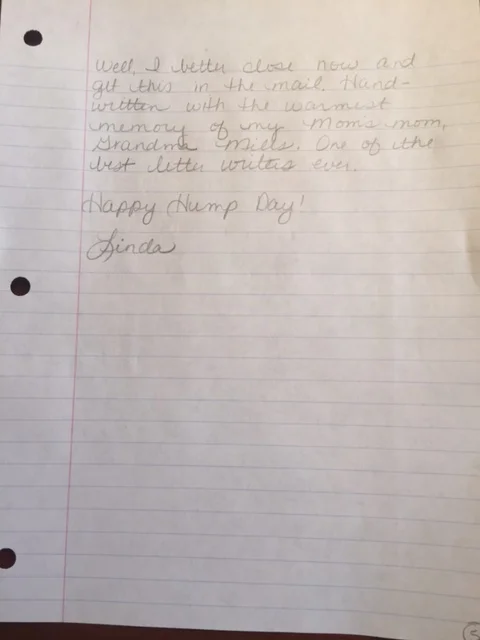 Well, I better close now and
get this in the mail. Hand-
written with the warmest
memory of my Mom's mom,
Grandma Mills. One of the
best letter writers ever.
Happy Hump Day!
Linda